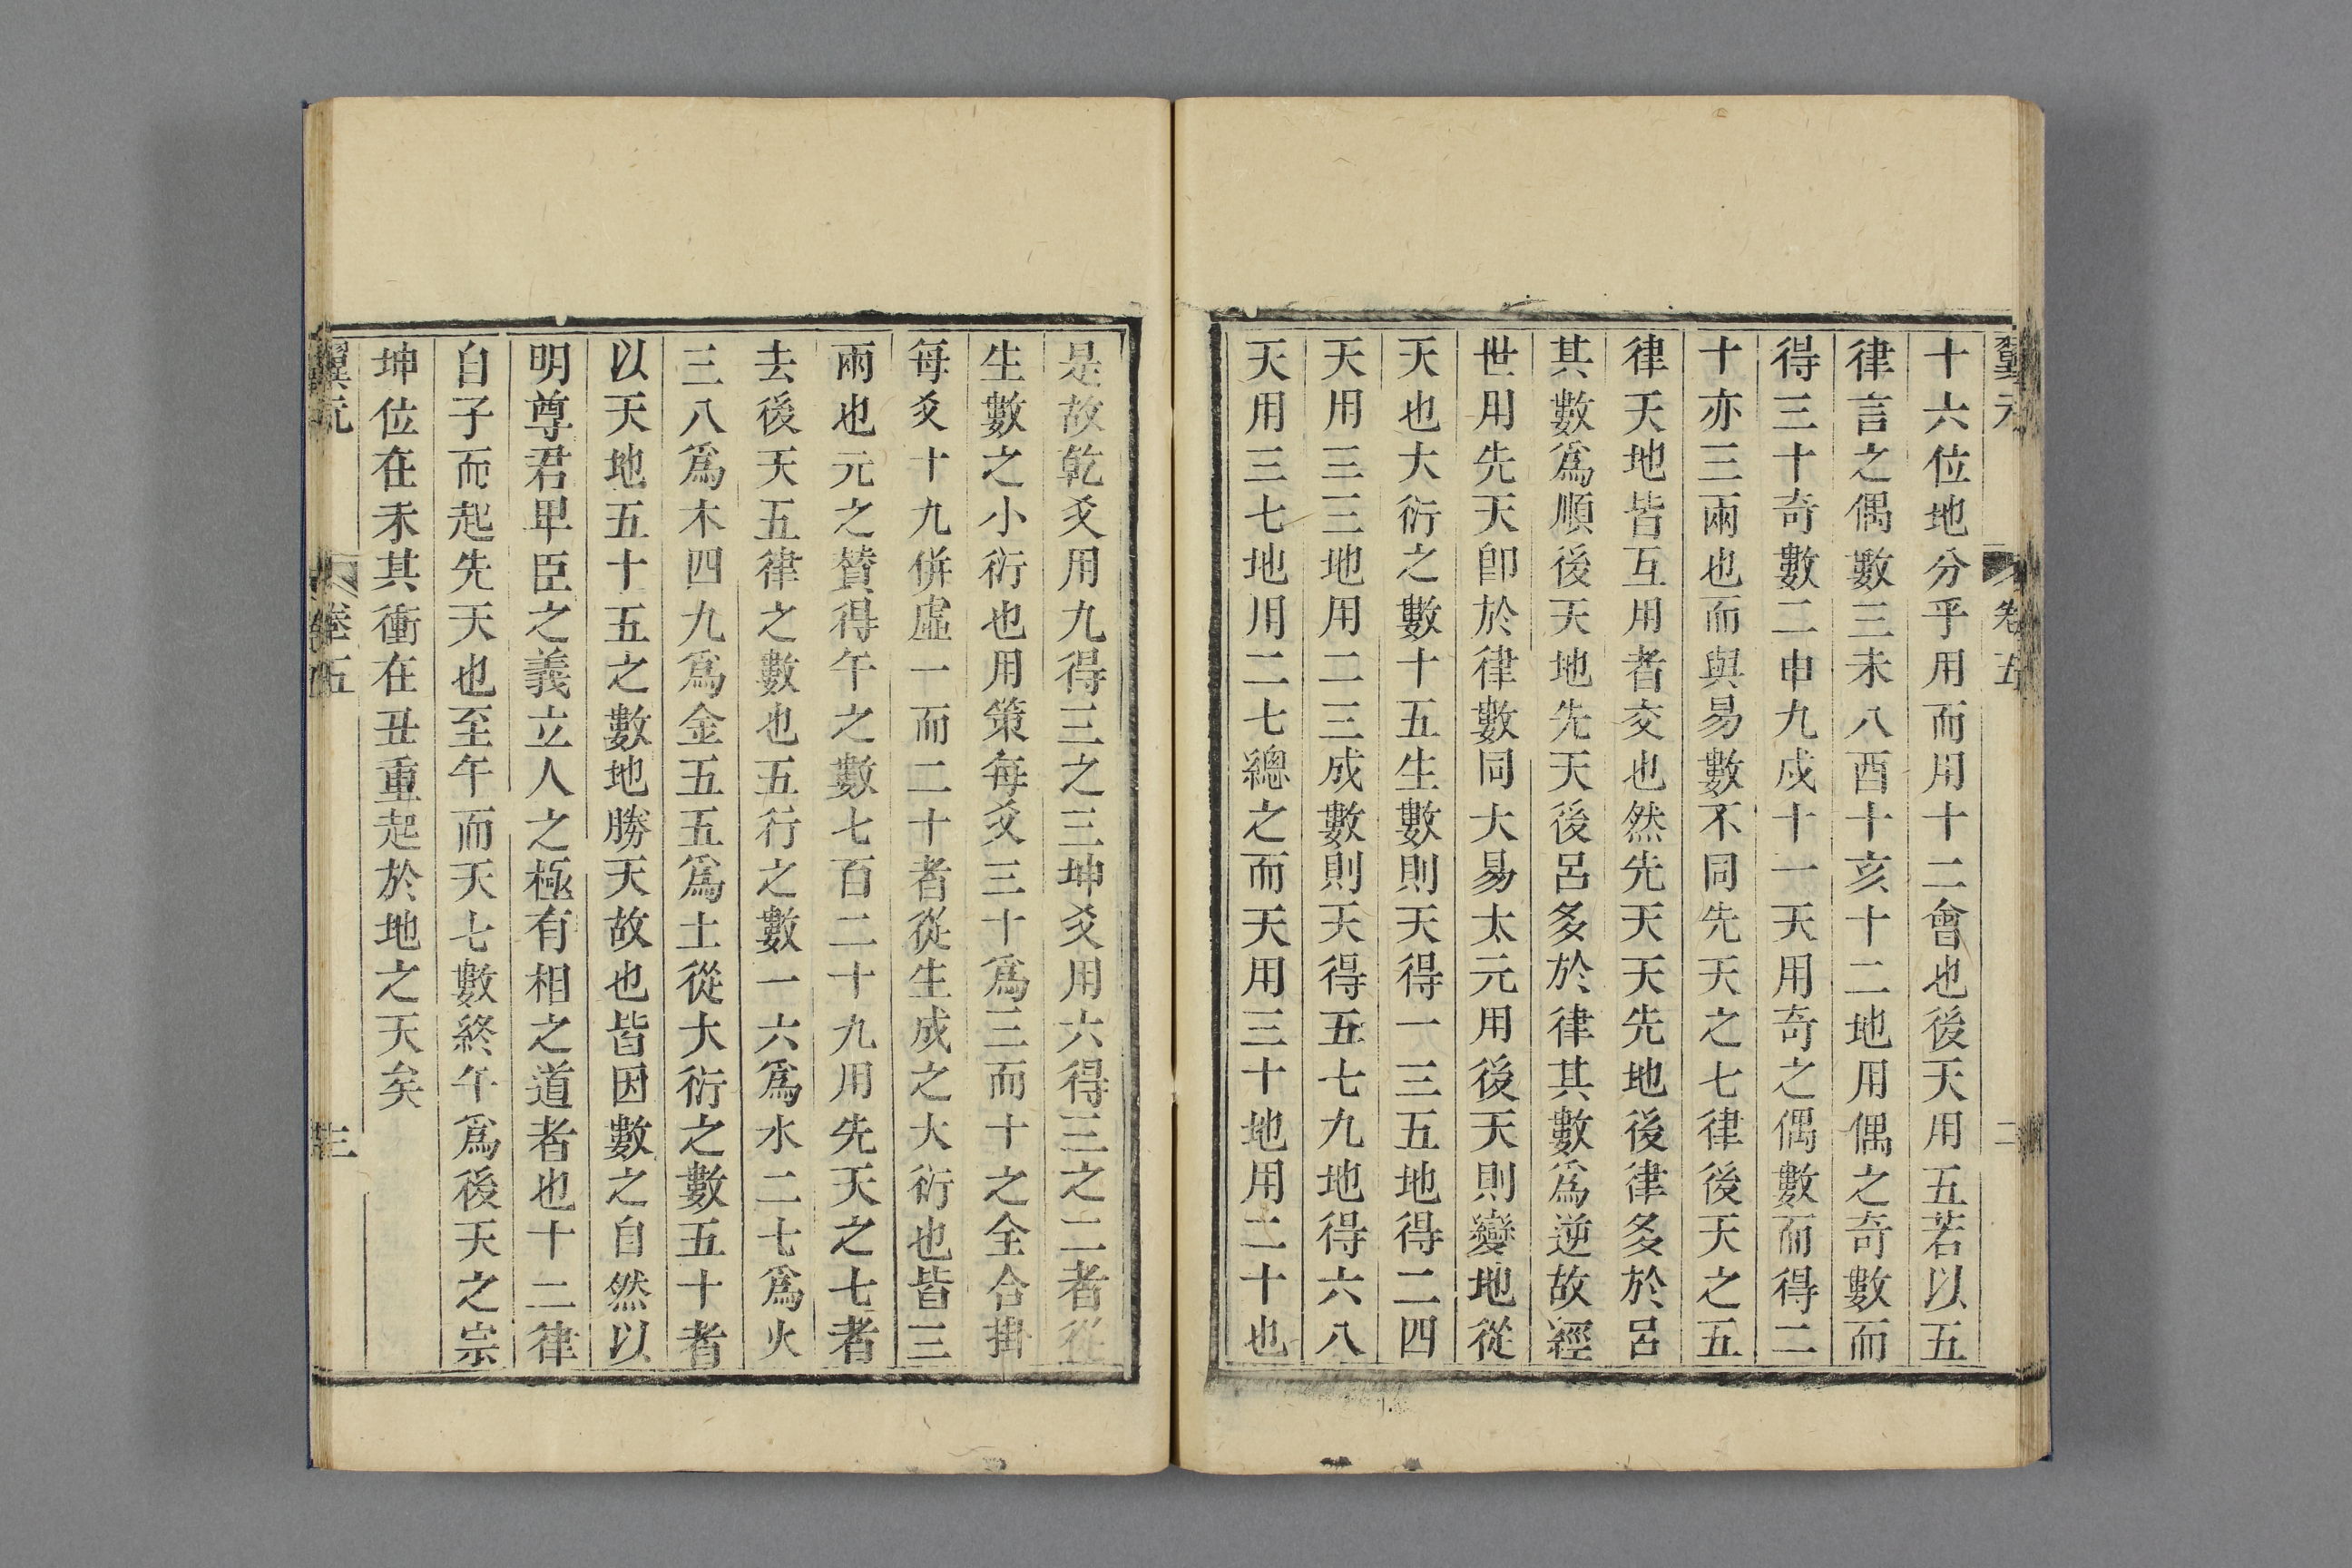 翼元 卷五 二
十六位地分乎用而用十二會也後天用五若以五
律言之偶數三未八酉十亥十二地用偶之奇數而
得三十奇數二申九戌十一天用奇之偶數而得二
十亦三兩也而與易數不同先天之七律後天之五
律天地皆互用者交也然先天天先地後律多於呂
其數爲順後天地先天後呂多於律其數爲逆故經
世用先天卽於律數同大易太元用後天則變地從
天也大衍之數十五生數則天得一三五地得二四
天用三三地用二三成數則天得五七九地得六八
天用三七地用二七總之而天用三十地用二十也
是故乾爻用九得三之三坤爻用六得三之二者從
生數之小衍也用策每爻三十爲三而十之全合掛
每爻十九併虛一而二十者從生成之大衍也皆三
兩也元之贊得午之數七百二十九用先天之七者
去後天五律之數也五行之數一六爲水二七爲火
三八爲木四九爲金五五爲土從大衍之數五十者
以天地五十五之數地勝天故也皆因數之自然以
明尊君卑臣之義立人之極有相之道者也十二律
自子而起先天也至午而天七數終午爲後天之宗
坤位在未其衝在丑重起於地之天矣
翼元 卷五 三